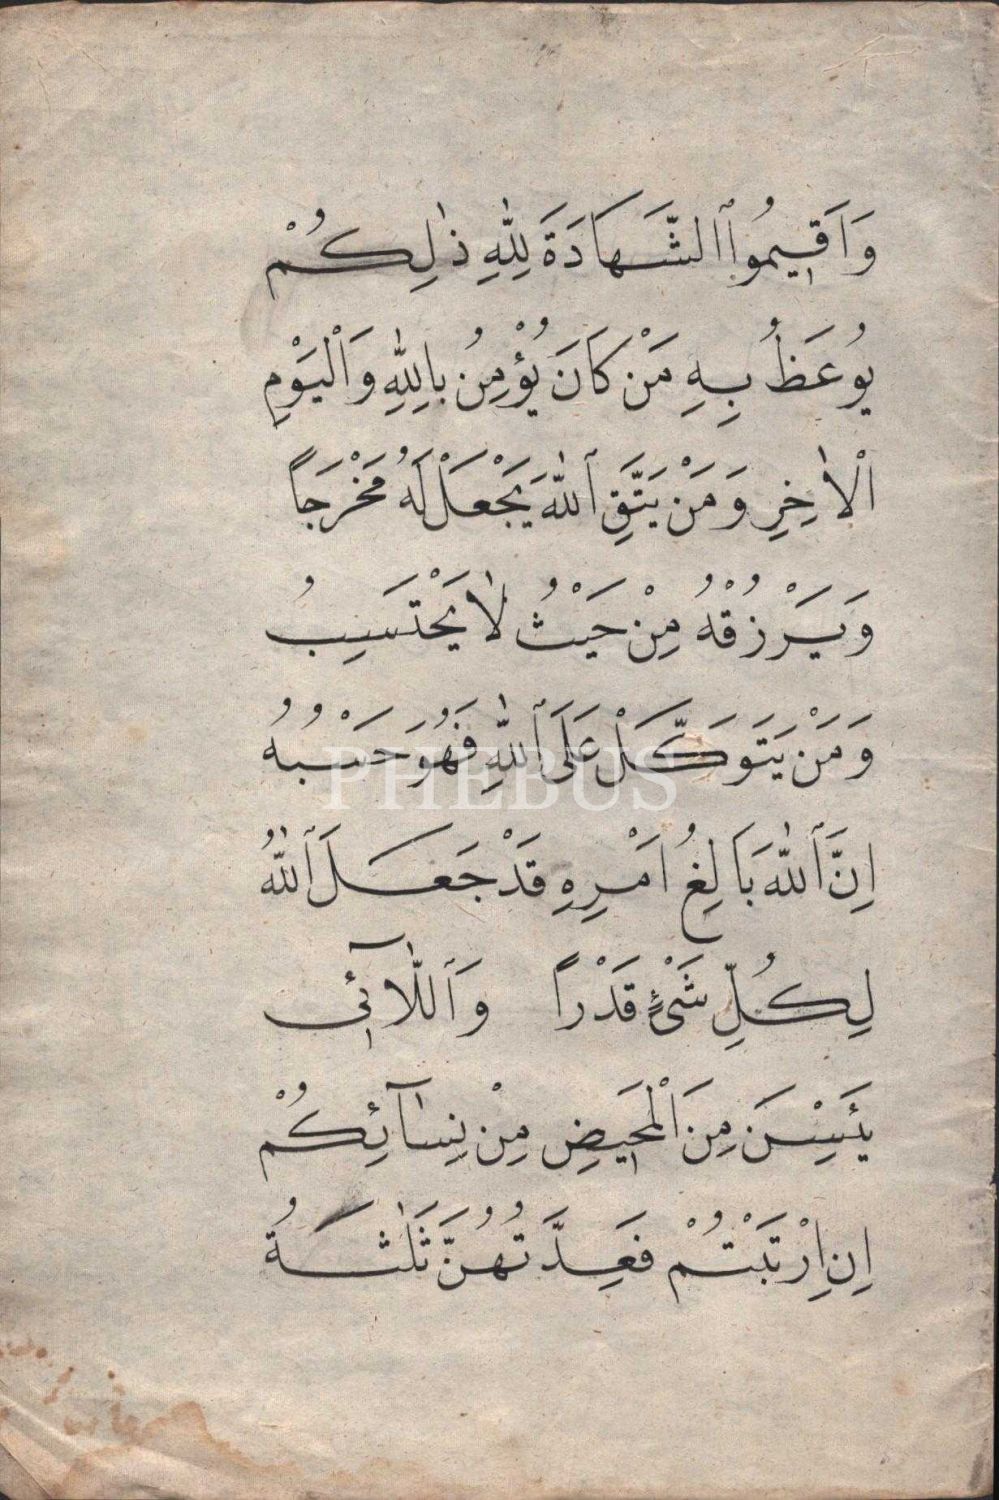 وَاَقٖيمُوا ٱلشَّهَادَةَ لِلّٰهِ ذٰلِكُمْ
يُوعَظُ بِهِ مَنْ كَانَ يُؤْمِنُ بِاللّٰهِ وَالْيَوْمِ
الْاٰخِرِ وَمَنْ يَتَّقِ ٱللّٰهَ يَجْعَلْ لَهُ مَخْرَجاً
وَيَرْزُقْهُ مِنْ حَيْثُ لَا يَحْتَسِبُ
وَمَنْ يَتَوَكَّلْ عَلَى ٱللّٰهِ فَهُوَ حَسْبُهُ
PHEBUS
اِنَّ ٱللّٰهَ بَالِغُ اَمْرِهِ قَدْ جَعَلَ ٱللّٰهُ
لِكُلِّ شَىْءٍ قَدْرًا وَٱللَّآئٖى
يَئِسْنَ مِنَ الْمَحٖيضِ مِنْ نِسَآئِكُمْ
اِنِ ارْتَبْتُمْ فَعِدَّتُهُنَّ ثَلٰثَةُ